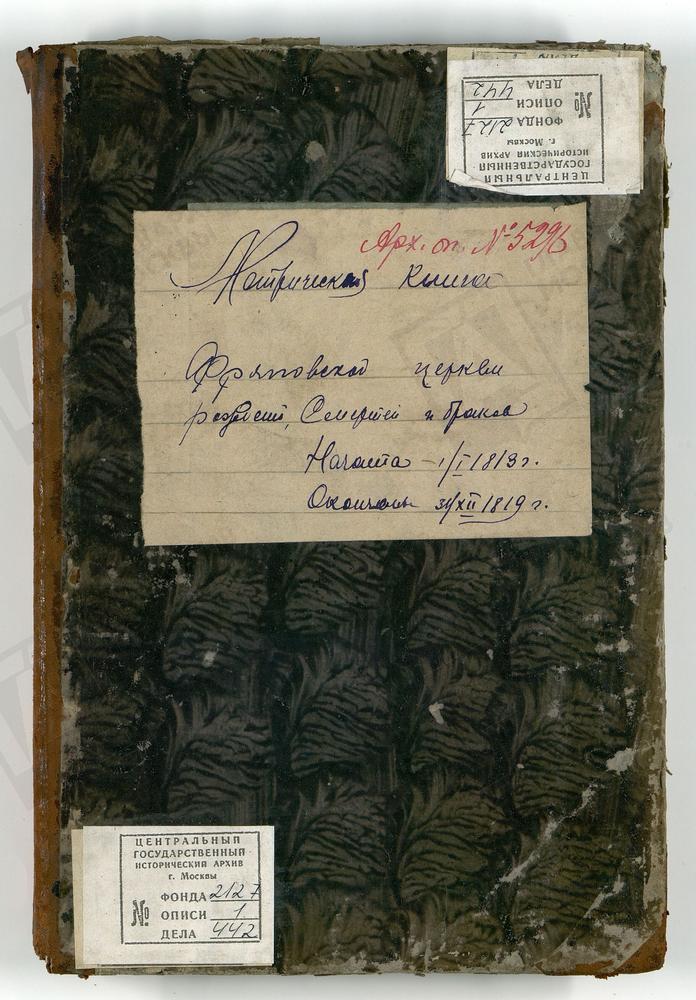 ЦЕНТРАЛЬНЫЙ
ГОСУДАРСТВЕННЫЙ
ИСТОРИЧЕСКИЙ АРХИВ
г. Москвы
ФОНДА 2127
№ ОПИСИ 1
ДЕЛА 442
Арх. оп. № 5296
Метрическая книга
Фряновской церкви
рождений, Смертей и браков
Начата – 1/I 1813 г.
Окончены 31/XII 1819 г.
ЦЕНТРАЛЬНЫЙ
ГОСУДАРСТВЕННЫЙ
ИСТОРИЧЕСКИЙ АРХИВ
г. Москвы
ФОНДА 2127
№ ОПИСИ 1
ДЕЛА 442